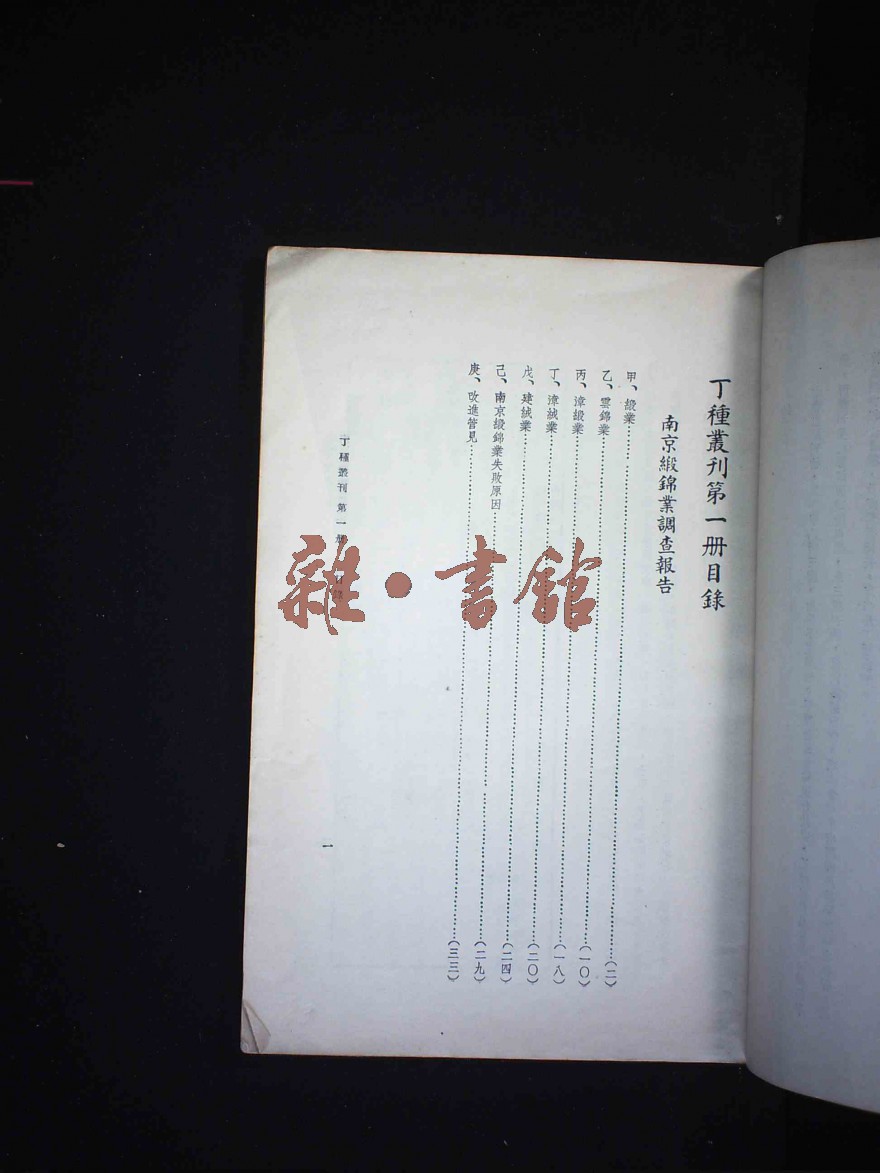 丁種叢刊第一册目錄
南京緞錦業調查報告
甲、緞業……(二)
乙、雲錦業……(一〇)
丙、漳緞業……(一八)
丁、漳絨業……(二〇)
戊、建絨業……(二四)
己、南京緞錦業失敗原因……(二九)
庚、改進管見……(三三)
丁種叢刊 第一册 目錄
一
雜·書館